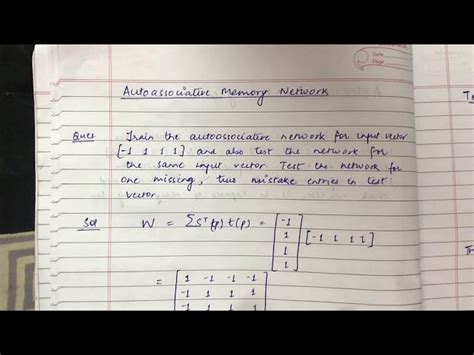 Date
Page
Autoassociative Memory Network
Ques Train the autoassociative network for input vector
[-1 1 1 1] and also test the network for
the same input vector. Test the network for
one missing, two mistake entries in test
vector.
Sol W = ΣSᵀ(p) t(p) = [-1 1 1 1] [-1 1 1 1]
= [1 -1 -1 -1
-1 1 1 1
-1 1 1 1